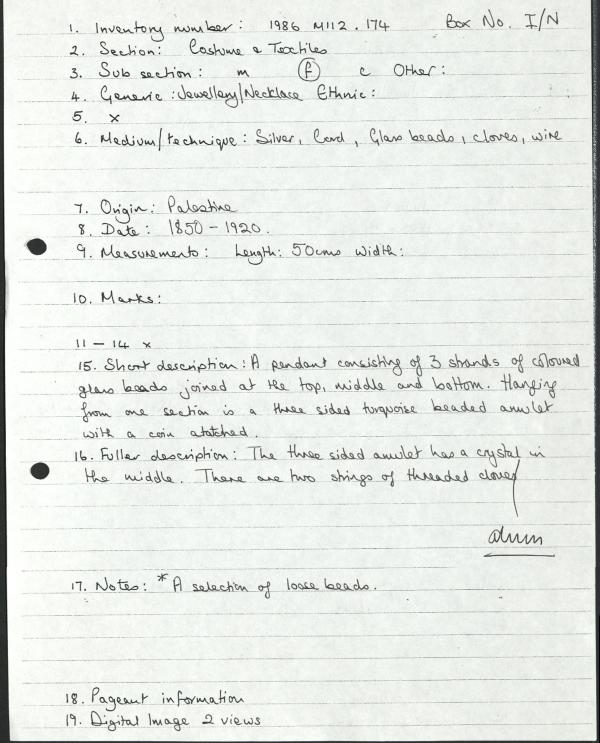 1. Inventory number: 1986 M112.174 Box No. I/N
2. Section: Costume & Textiles
3. Sub section: m f c Other:
4. Generic: Jewellery/Necklace Ethnic:
5. x
6. Medium/technique: Silver, Cord, Glass beads, cloves, wire
7. Origin: Palestine
8. Date: 1850-1920.
9. Measurements: Length: 50cms Width:
10. Marks:
11-14 x
15. Short description: A pendant consisting of 3 strands of coloured
glass beads joined at the top, middle and bottom. Hanging
from one section is a three sided turquoise beaded amulet
with a coin atatched.
16. Fuller description: The three sided amulet has a crystal in
the middle. There are two strings of threaded cloves
17. Notes: * A selection of loose beads.
18. Pageant information
19. Digital Image 2 views